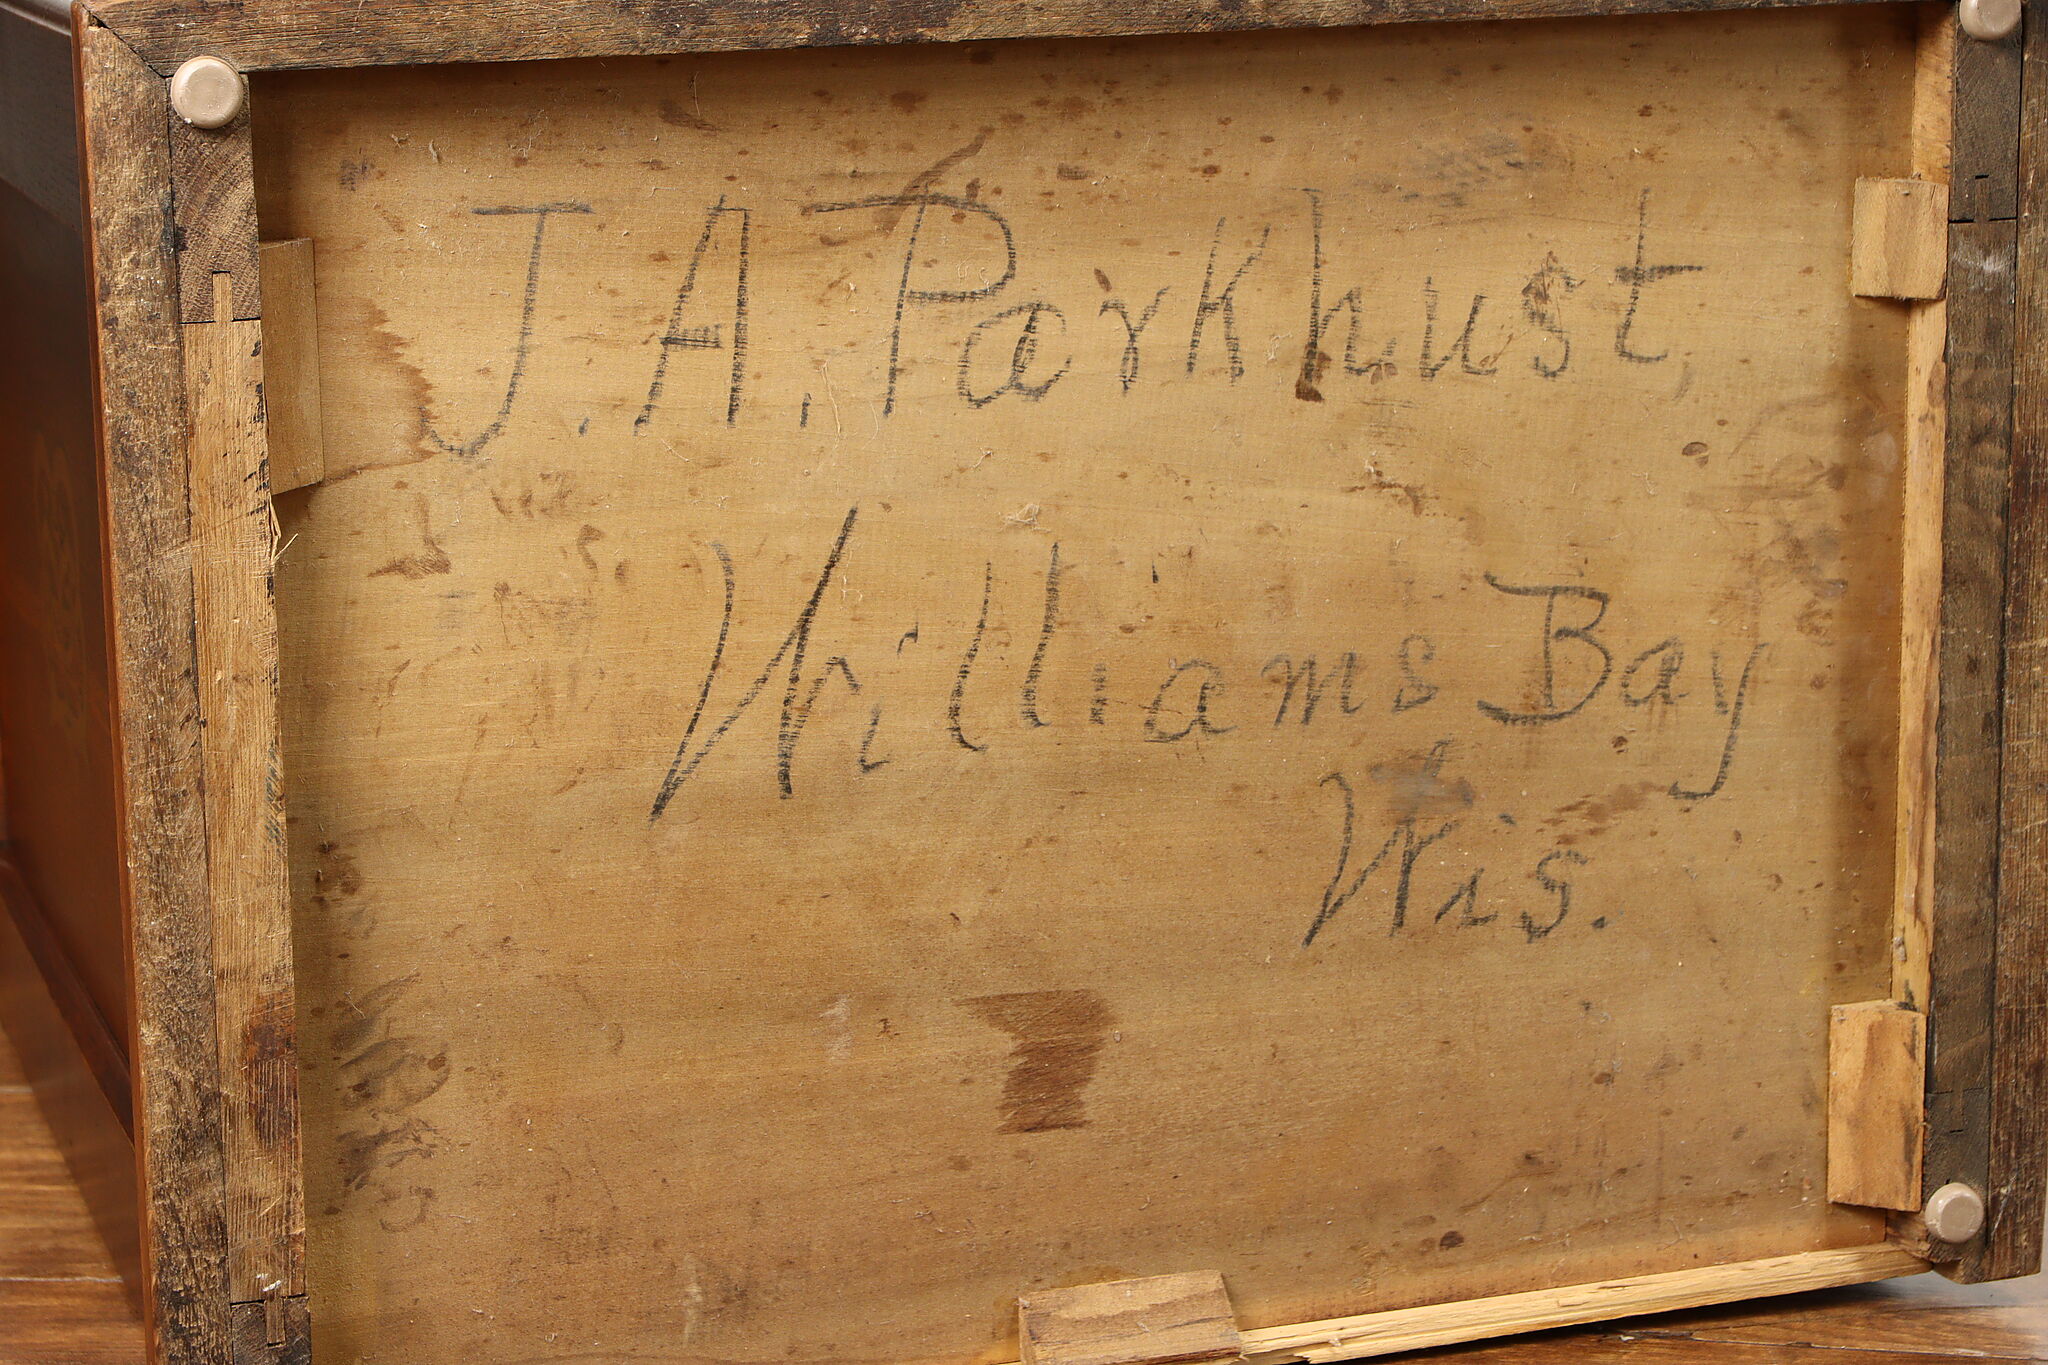 J. A. Parkhust,
Williams Bay
Wis.